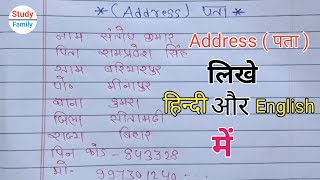 Study
Family
* (Address) पता *
नाम संतोष कुमार
पिता रामप्रवेश सिंह
ग्राम हरियारपुर
पो० मीनापुर
थाना डुमरा
जिला सीतामढ़ी
राज्य बिहार
पिन कोड - 843328
मो० - 997301240 - ...
Address ( पता )
लिखे
हिन्दी और English
में